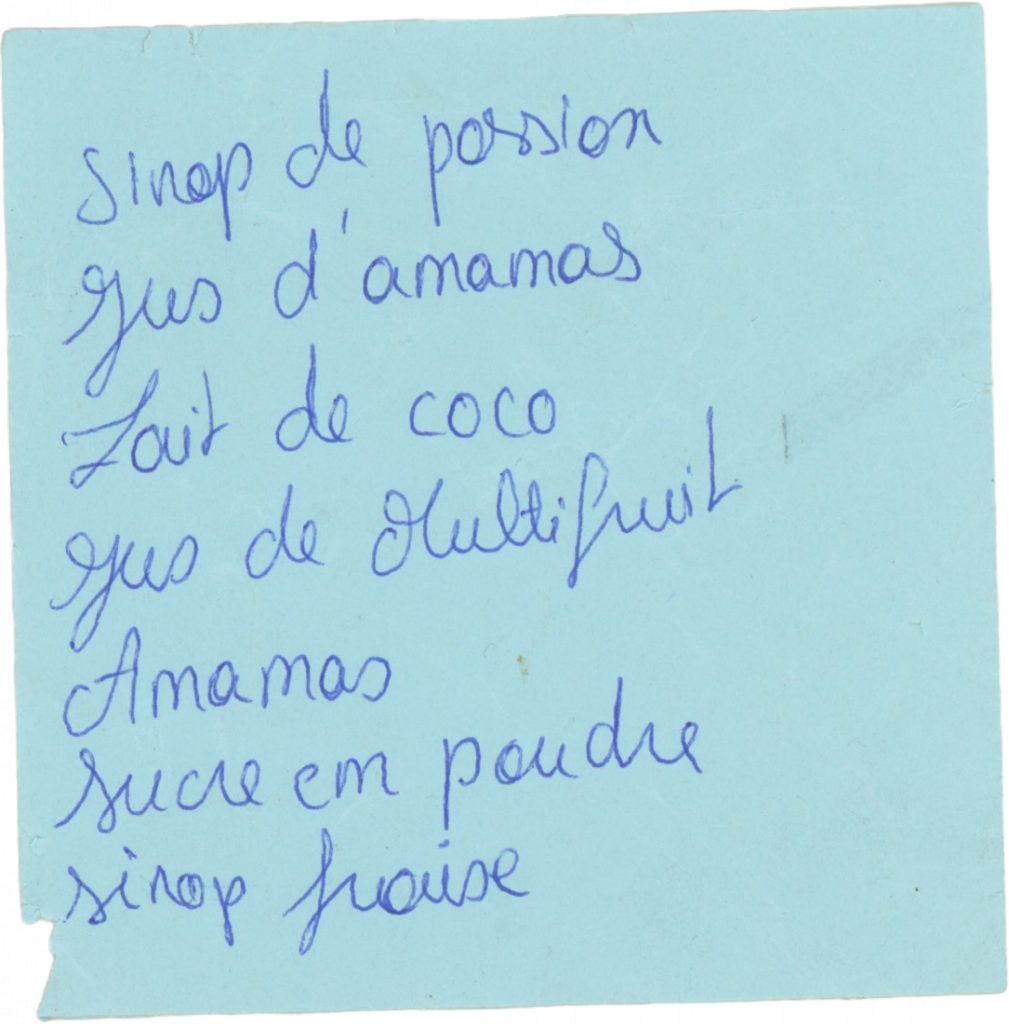 sirop de passion
jus d'ananas
Lait de coco
jus de Multifruit
Ananas
sucre en poudre
sirop fraise